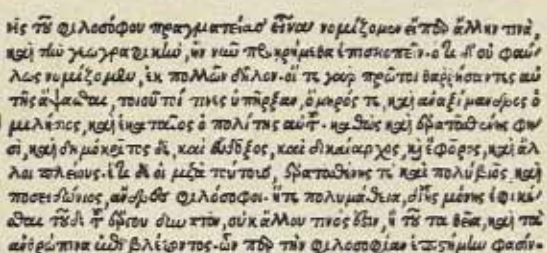 ῆς τοῦ φιλοσόφου πραγματείας εἶναι νομίζομεν εἴπερ ἄλλην τινὰ,
καὶ τὴν γεωγραφικὴν, ἣν νῦν προῃρήμεθα ἐπισκοπεῖν. ὅτι δ' οὐ φαύ
λως νομίζομεν, ἐκ πολλῶν δῆλον. οἵ τε γὰρ πρῶτοι θαρρήσαντες αὐ
τῆς ἅψασθαι, τοιοῦτοί τινες ὑπῆρξαν, ὅμηρός τε, καὶ ἀναξίμανδρος ὁ
μιλήσιος, καὶ ἑκαταῖος ὁ πολίτης αὐτοῦ. καθὼς καὶ ἐρατοσθένης φη
σὶ, καὶ δημόκριτος δὲ, καὶ εὔδοξος, καὶ δικαίαρχος, καὶ ἔφορος, καὶ ἄλ
λοι πλείους. ἔτι δὲ οἱ μετὰ τούτους, ἐρατοσθένης τε καὶ πολύβιος, καὶ
ποσειδώνιος, ἄνδρες φιλόσοφοι. ἥτε πολυμάθεια, δι' ἧς μόνης ἐφικέ
σθαι τοῦδε τοῦ ἔργου δυνατὸν, οὐκ ἄλλου τινός ἐστιν, ἢ τοῦ τὰ θεῖα, καὶ τὰ
ἀνθρώπινα ἐπιβλέποντος. ὧν περ τὴν φιλοσοφίαν ἐπιστήμην φασίν.